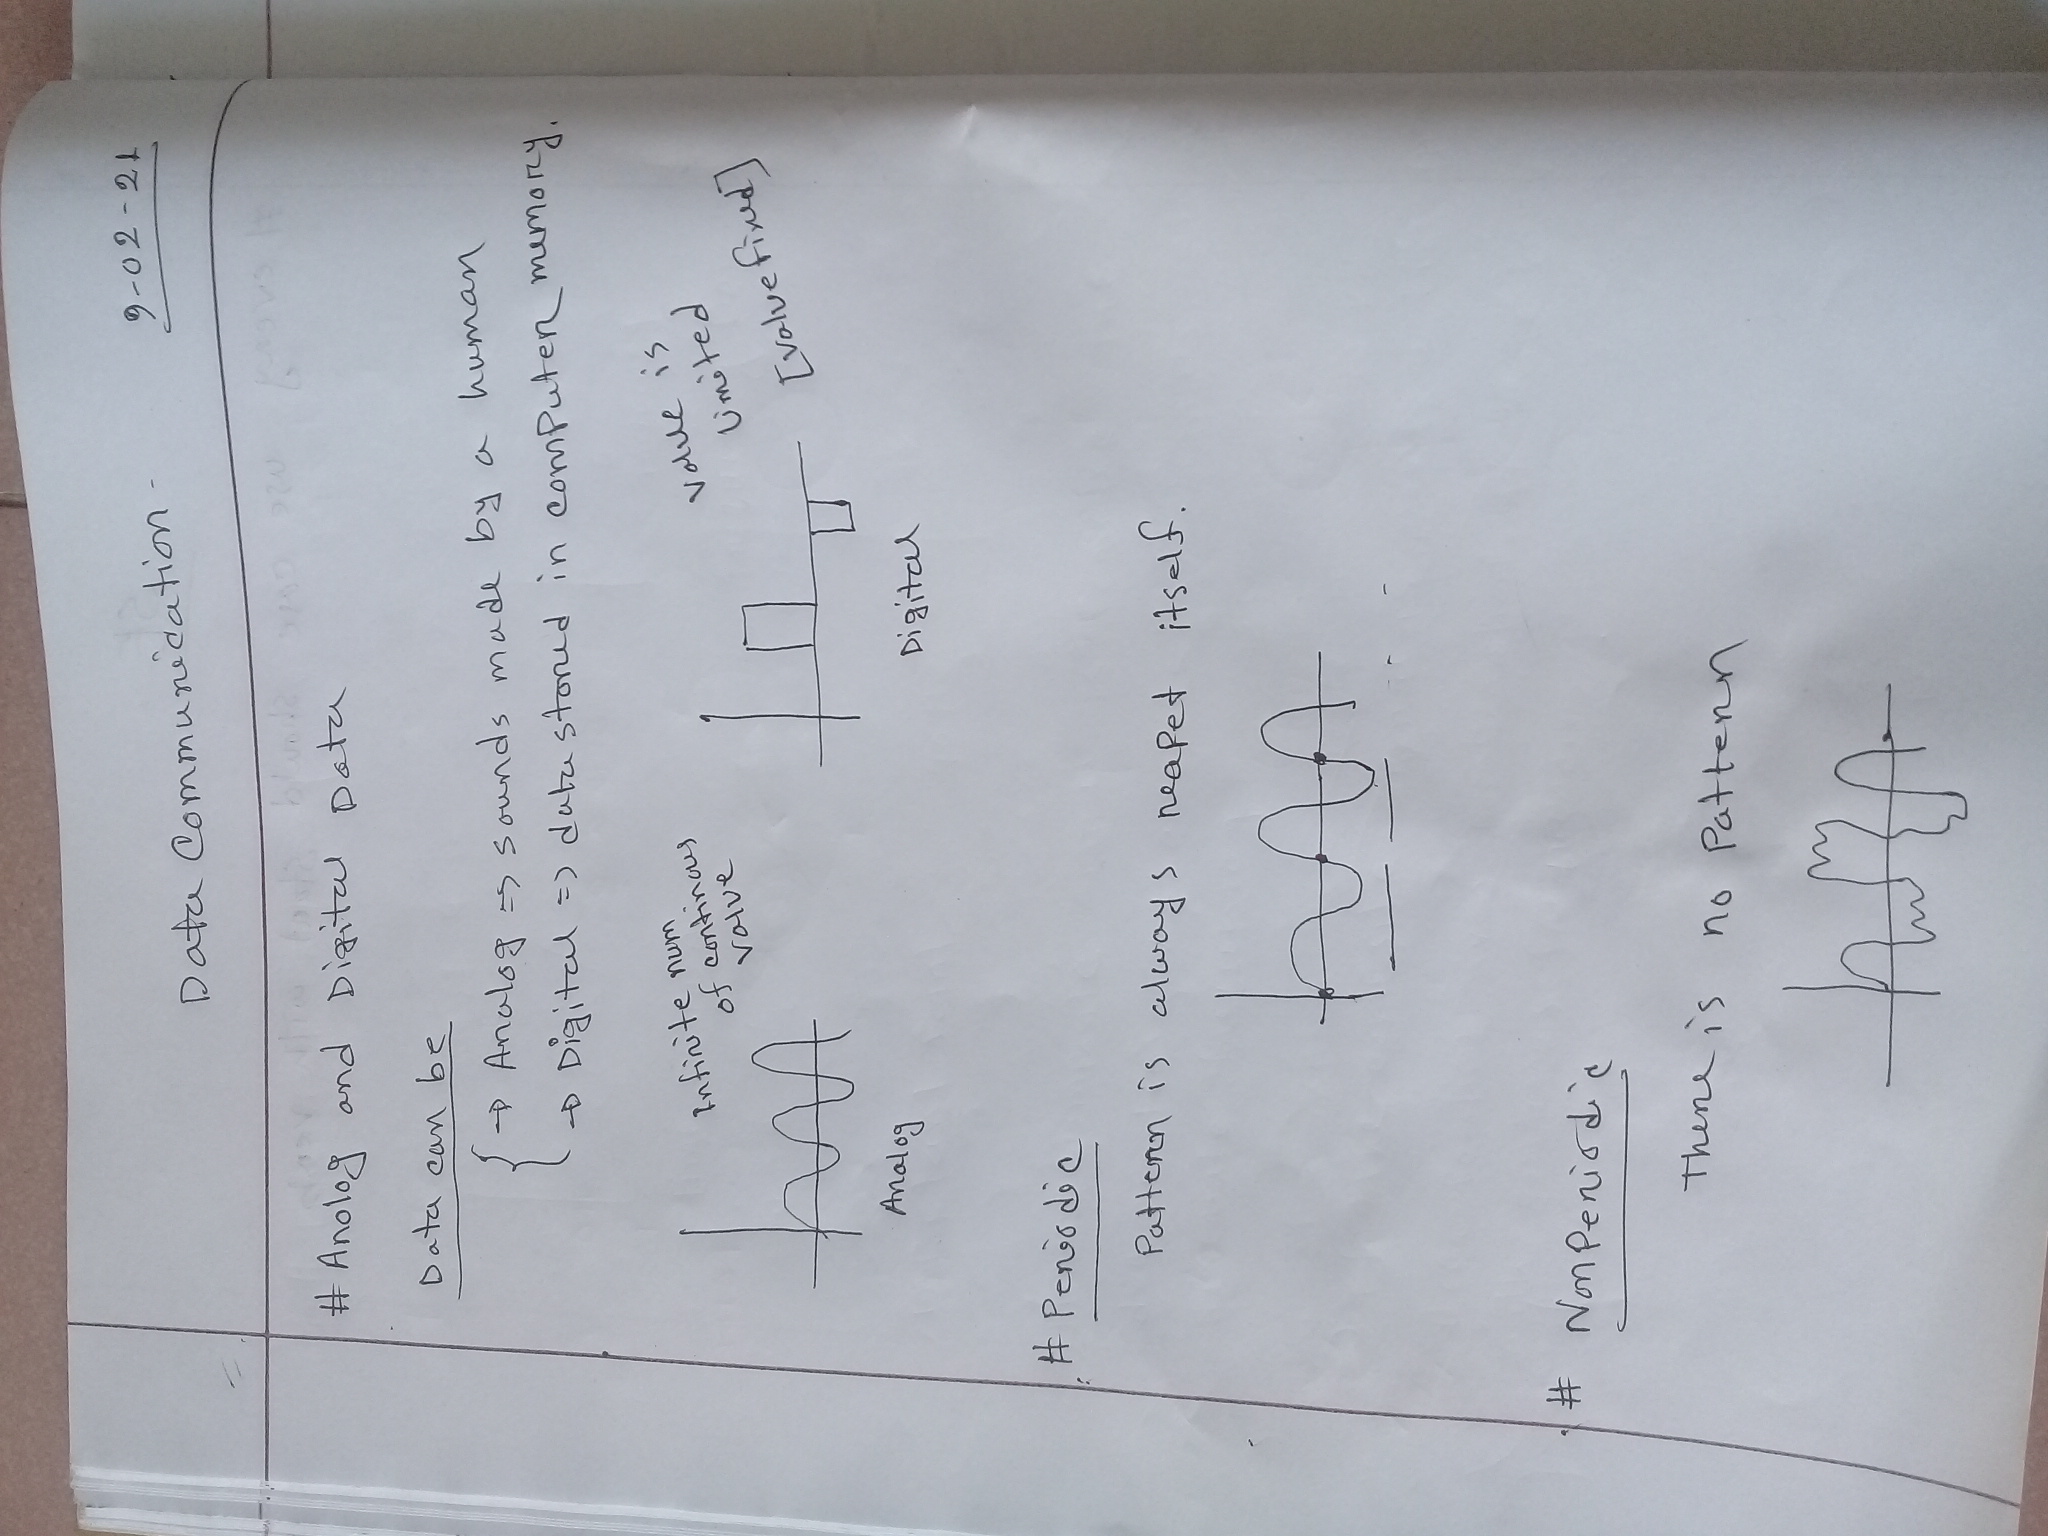 Data Communication -
9-02-21
# Anolog and Digital Data
Data can be
→ Analog => sounds made by a human
→ Digital => data stored in computer memory.
Infinite num
of continous
value
value is
limited
[value fixed]
Analog
Digital
# Periodic
Pattern is always reapet itself.
# Nonperiodic
There is no Pattern